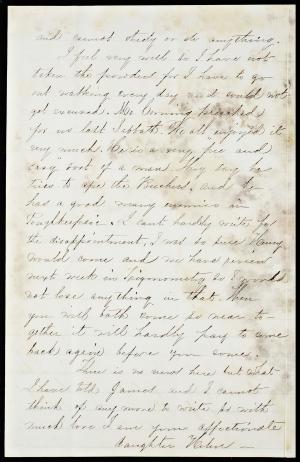 and cannot study or do anything.
I feel very well so I have not
taken the powders for I have to go
out walking every day and could not
get excused. Mr Corning preached
for us last Sabbath. We all enjoyed it
very much. He is a very free and
easy sort of a man. They say he
tries to ape the Beechers, and he
has a good many enemies in
Poughkeepsie. I can't hardly write for
the disappointment, I was so sure
would come and we have review
next week in Trigonometry so I would
not lose anything in that. When
you will both come so near to-
gether it will hardly pay to come
back again before you come.
There is no news here but what
I have told James and I cannot
think of any more to write so with
much love I am your affectionate
daughter